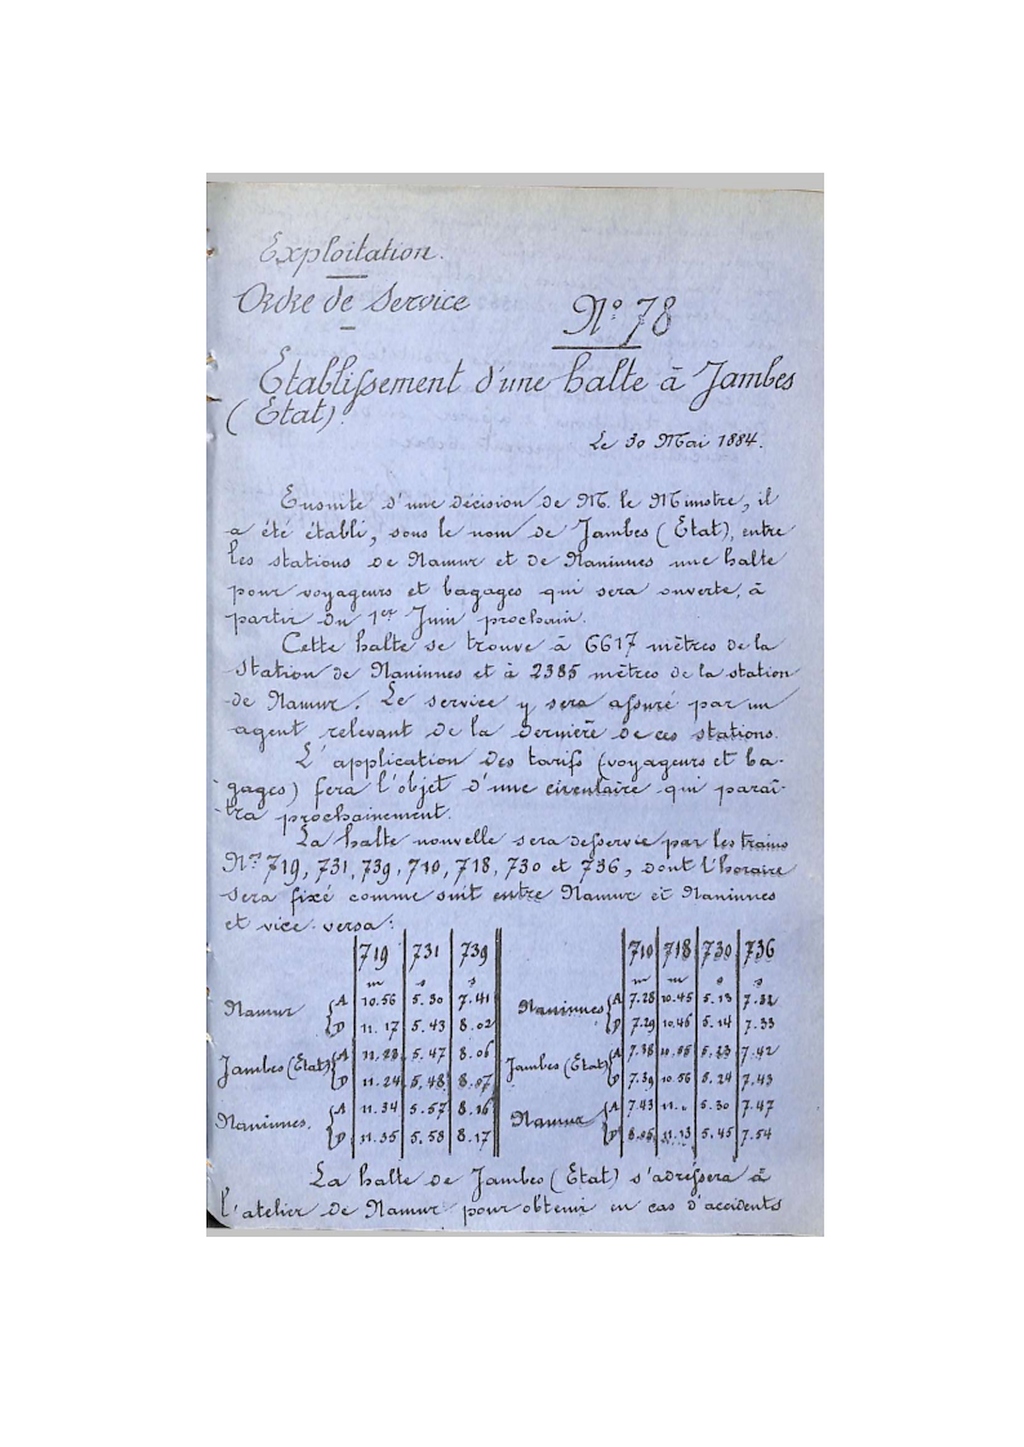 Exploitation.
Ordre de Service
N° 78
Etablissement d'une halte à Jambes
(Etat).
Le 30 Mai 1884.
Ensuite d'une décision de M. le Ministre, il
a été établi, sous le nom de Jambes (Etat), entre
les stations de Namur et de Naninnes une halte
pour voyageurs et bagages qui sera ouverte, à
partir du 1er Juin prochain.
Cette halte se trouve à 6617 mètres de la
station de Naninnes et à 2385 mètres de la station
de Namur. Le service y sera assuré par un
agent relevant de la dernière de ces stations.
L'application des tarifs (voyageurs et ba-
gages) fera l'objet d'une circulaire qui paraî-
tra prochainement.
La halte nouvelle sera desservie par les trains
Nos 719, 731, 739, 710, 718, 730 et 736, dont l'horaire
sera fixé comme suit entre Namur et Naninnes
et vice-versa:
719 731 739 710 718 730 736
m s s m m s s
Namur A 10.56 5.30 7.41 Naninnes A 7.28 10.45 5.13 7.32
D 11.17 5.43 8.02 D 7.29 10.46 5.14 7.33
Jambes (Etat) A 11.23 5.47 8.06 Jambes (Etat) A 7.38 10.55 5.23 7.42
D 11.24 5.48 8.07 D 7.39 10.56 5.24 7.43
Naninnes. A 11.34 5.57 8.16 Namur A 7.43 11. 5.30 7.47
D 11.35 5.58 8.17 D 8.05 11.13 5.45 7.54
La halte de Jambes (Etat) s'adressera à
l'atelier de Namur pour obtenir en cas d'accidents